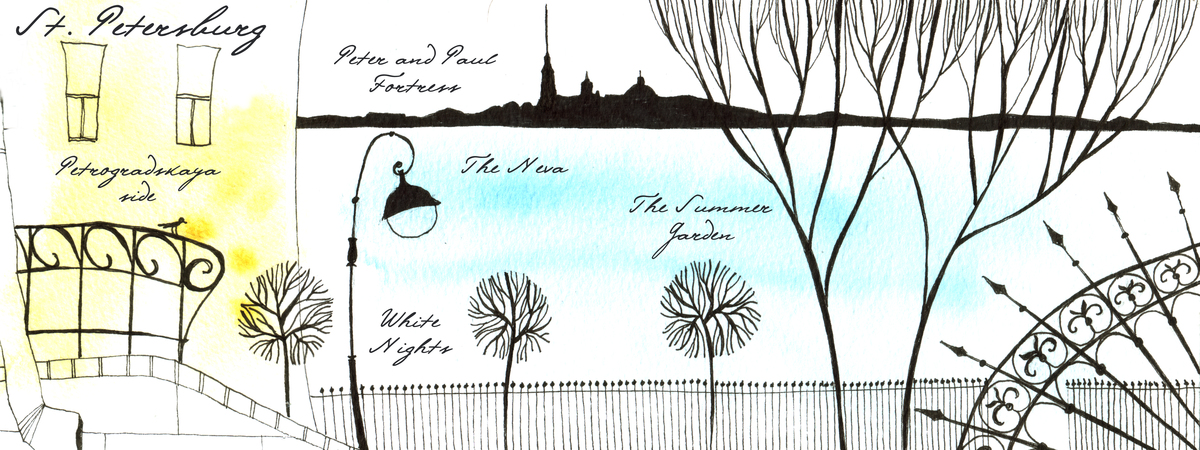 St. Petersburg
Peter and Paul
Fortress
Petrogradskaya
side
The Neva
The Summer
Garden
White
Nights